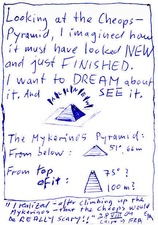 Looking at the Cheops-
Pyramid, I imagined how
it must have looked NEW
and just FINISHED.
I want to DREAM about
it. And SEE it.
The Mykerinos Pyramid:
From below: 51° 66m
From top
of it: 75°?
100m?
"I realized - after climbing up the
Mykerinos - that the Cheops would
be REALLY scary!!"